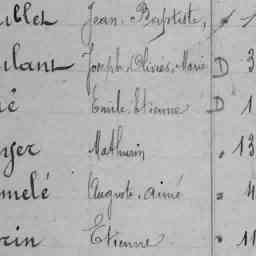 illet Jean-Baptiste, 1
ulant Joseph Olivier Marie D 3
é Emile Etienne D 1
yer Mathurin " 13
melé Auguste Aimé " 4
rin Etienne " 11